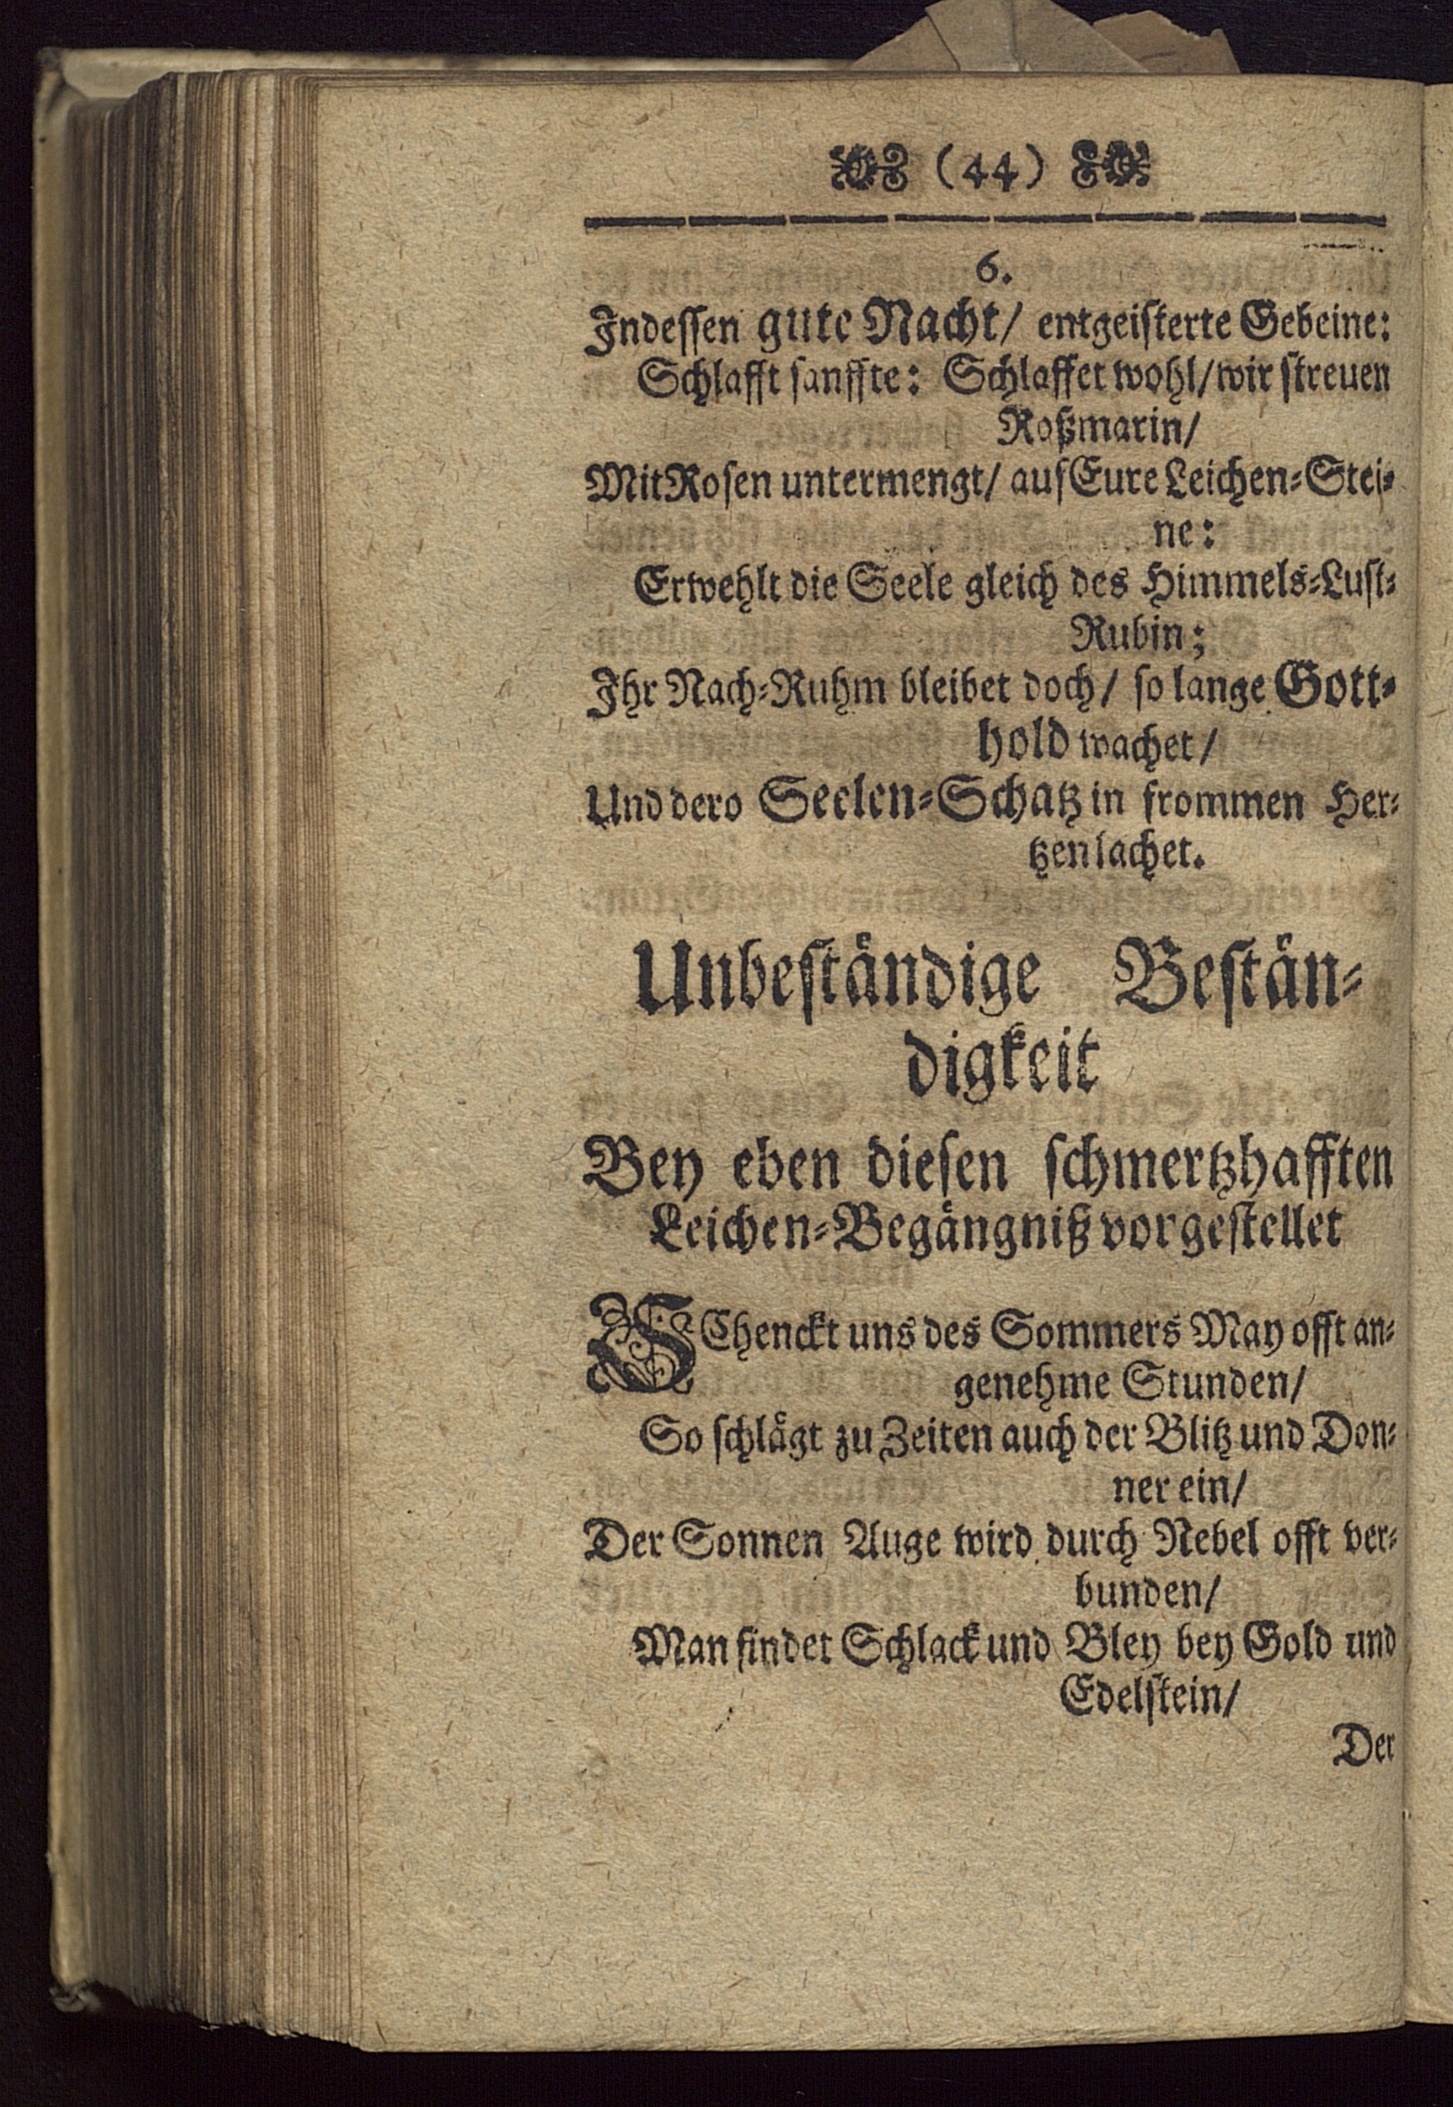 (44)
6.
Indessen gute Nacht/ entgeisterte Gebeine:
Schlafft sanffte: Schlaffet wohl/wir streuen
Roßmarin/
Mit Rosen untermengt/ auf Eure Leichen-Stei-
ne:
Erwehlt die Seele gleich des Himmels-Lust-
Rubin;
Ihr Nach-Ruhm bleibet doch/ so lange Gott-
hold wachet/
Und dero Seelen-Schatz in frommen Her-
tzen lachet.
Unbeständige Bestän-
digkeit
Bey eben diesen schmertzhafften
Leichen-Begängniß vorgestellet
SChenckt uns des Sommers May offt an-
genehme Stunden/
So schlägt zu Zeiten auch der Blitz und Don-
ner ein/
Der Sonnen Auge wird durch Nebel offt ver-
bunden/
Man findet Schlack und Bley bey Gold und
Edelstein/
Der